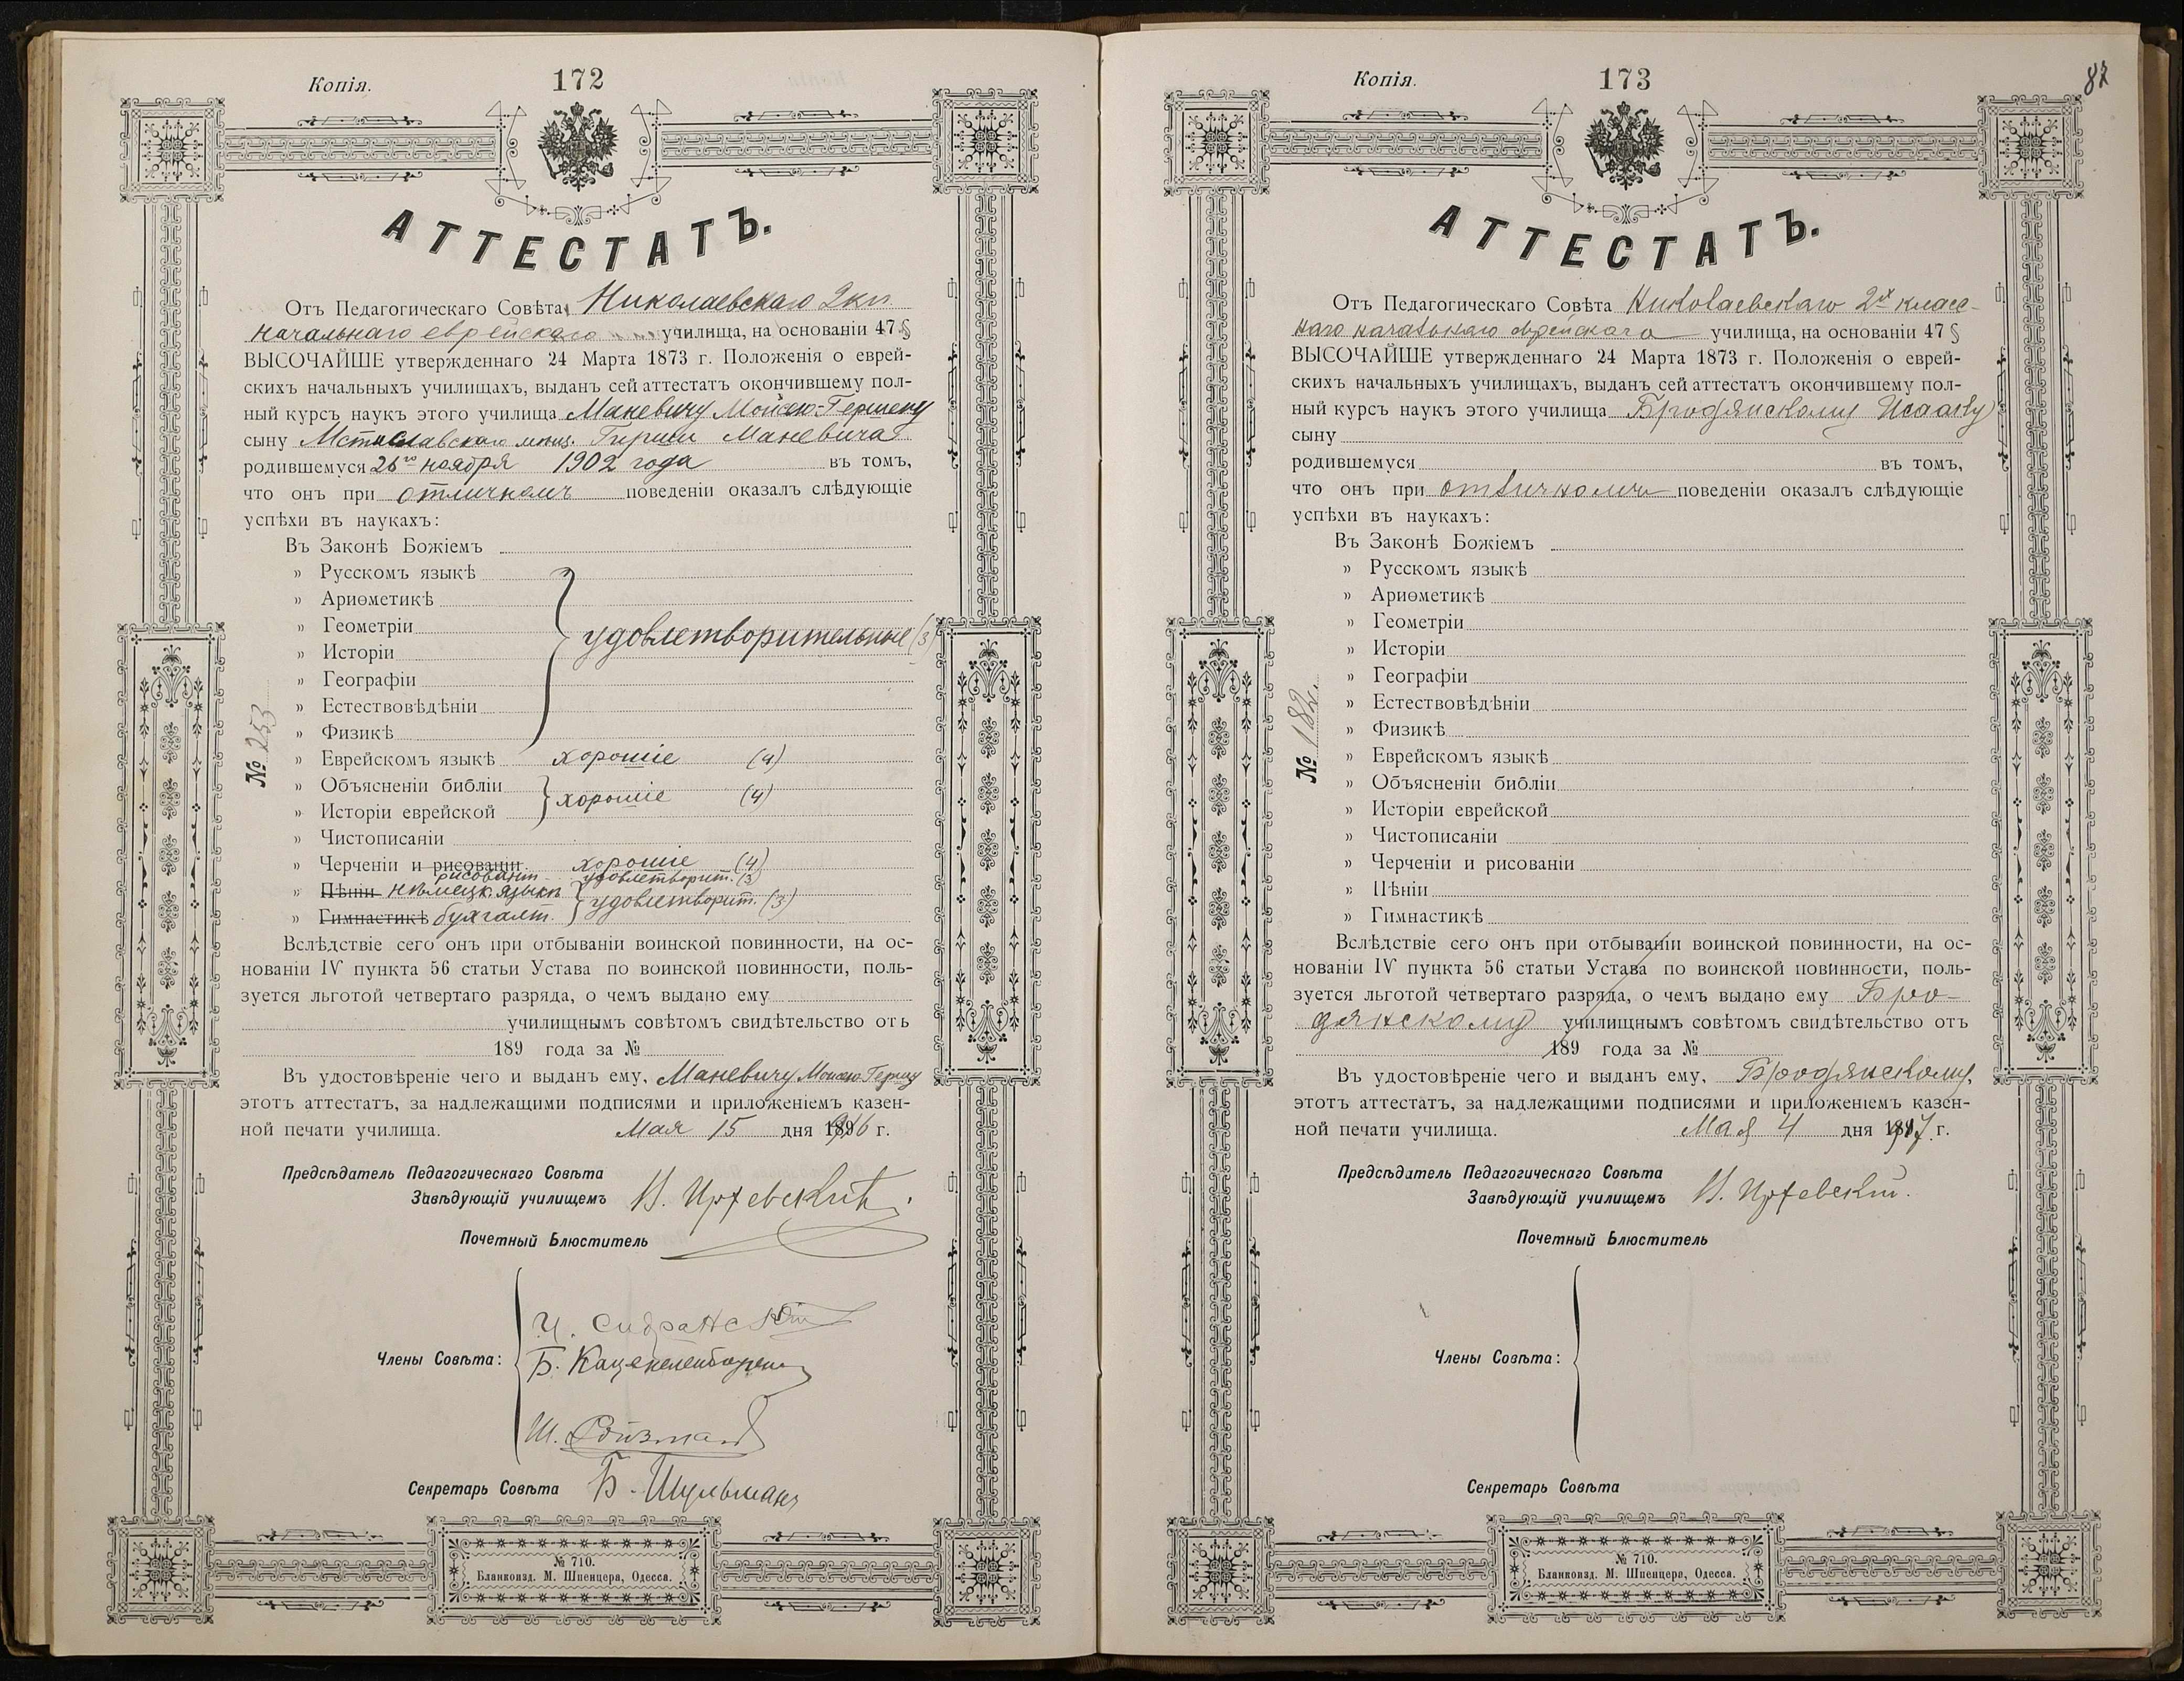 Копія.
172
АТТЕСТАТЪ.
Отъ Педагогическаго Совѣта Николаевскаго 2кл
начальнаго еврейскаго училища, на основаніи 47 §
ВЫСОЧАЙШЕ утвержденнаго 24 Марта 1873 г. Положенія о еврей-
скихъ начальныхъ училищахъ, выданъ сей аттестатъ окончившему пол-
ный курсъ наукъ этого училища Маневичу Мойсею-Гершену
сыну Мстиславскаго мѣщ. Гирши Маневича
родившемуся 26го ноября 1902 года въ томъ,
что онъ при отличномъ поведеніи оказалъ слѣдующіе
успѣхи въ наукахъ:
Въ Законѣ Божіемъ
» Русскомъ языкѣ
» Ариѳметикѣ
» Геометріи
удовлетворительные (3)
» Исторіи
» Географіи
» Естествовѣдѣніи
» Физикѣ
№ 253
» Еврейскомъ языкѣ хорошіе (4)
» Объясненіи библіи
хорошіе (4)
» Исторіи еврейской
» Чистописаніи
» Черченіи и рисованіи хорошіе (4)
рисованіи удовлетворит. (3)
» Пѣніи нѣмецк. языкѣ
удовлетворит. (3)
» Гимнастикѣ бухгалт.
Вслѣдствіе сего онъ при отбываніи воинской повинности, на ос-
нованіи IV пункта 56 статьи Устава по воинской повинности, поль-
зуется льготой четвертаго разряда, о чемъ выдано ему
училищнымъ совѣтомъ свидѣтельство отъ
189 года за №
Въ удостовѣреніе чего и выданъ ему, Маневичу Моисею Гершу
этотъ аттестатъ, за надлежащими подписями и приложеніемъ казен-
ной печати училища. Мая 15 дня 1916 г.
Предсѣдатель Педагогическаго Совѣта
Завѣдующій училищемъ
Почетный Блюститель
Члены Совѣта:
Секретарь Совѣта Б. Шульманъ
№ 710.
Бланкоизд. М. Шпенцера, Одесса.
Копія.
173
82
АТТЕСТАТЪ.
Отъ Педагогическаго Совѣта Николаевскаго 2х класс-
наго начальнаго еврейскаго училища, на основаніи 47 §
ВЫСОЧАЙШЕ утвержденнаго 24 Марта 1873 г. Положенія о еврей-
скихъ начальныхъ училищахъ, выданъ сей аттестатъ окончившему пол-
ный курсъ наукъ этого училища Бродянскому Исааку
сыну
родившемуся въ томъ,
что онъ при отличномъ поведеніи оказалъ слѣдующіе
успѣхи въ наукахъ:
Въ Законѣ Божіемъ
» Русскомъ языкѣ
» Ариѳметикѣ
» Геометріи
» Исторіи
» Географіи
» Естествовѣдѣніи
» Физикѣ
№ 182
» Еврейскомъ языкѣ
» Объясненіи библіи
» Исторіи еврейской
» Чистописаніи
» Черченіи и рисованіи
» Пѣніи
» Гимнастикѣ
Вслѣдствіе сего онъ при отбываніи воинской повинности, на ос-
нованіи IV пункта 56 статьи Устава по воинской повинности, поль-
зуется льготой четвертаго разряда, о чемъ выдано ему Бро-
дянскому училищнымъ совѣтомъ свидѣтельство отъ
189 года за №
Въ удостовѣреніе чего и выданъ ему, Бродянскому,
этотъ аттестатъ, за надлежащими подписями и приложеніемъ казен-
ной печати училища. Мая 4 дня 1917 г.
Предсѣдатель Педагогическаго Совѣта
Завѣдующій училищемъ
Почетный Блюститель
Члены Совѣта:
Секретарь Совѣта
№ 710.
Бланкоизд. М. Шпенцера, Одесса.